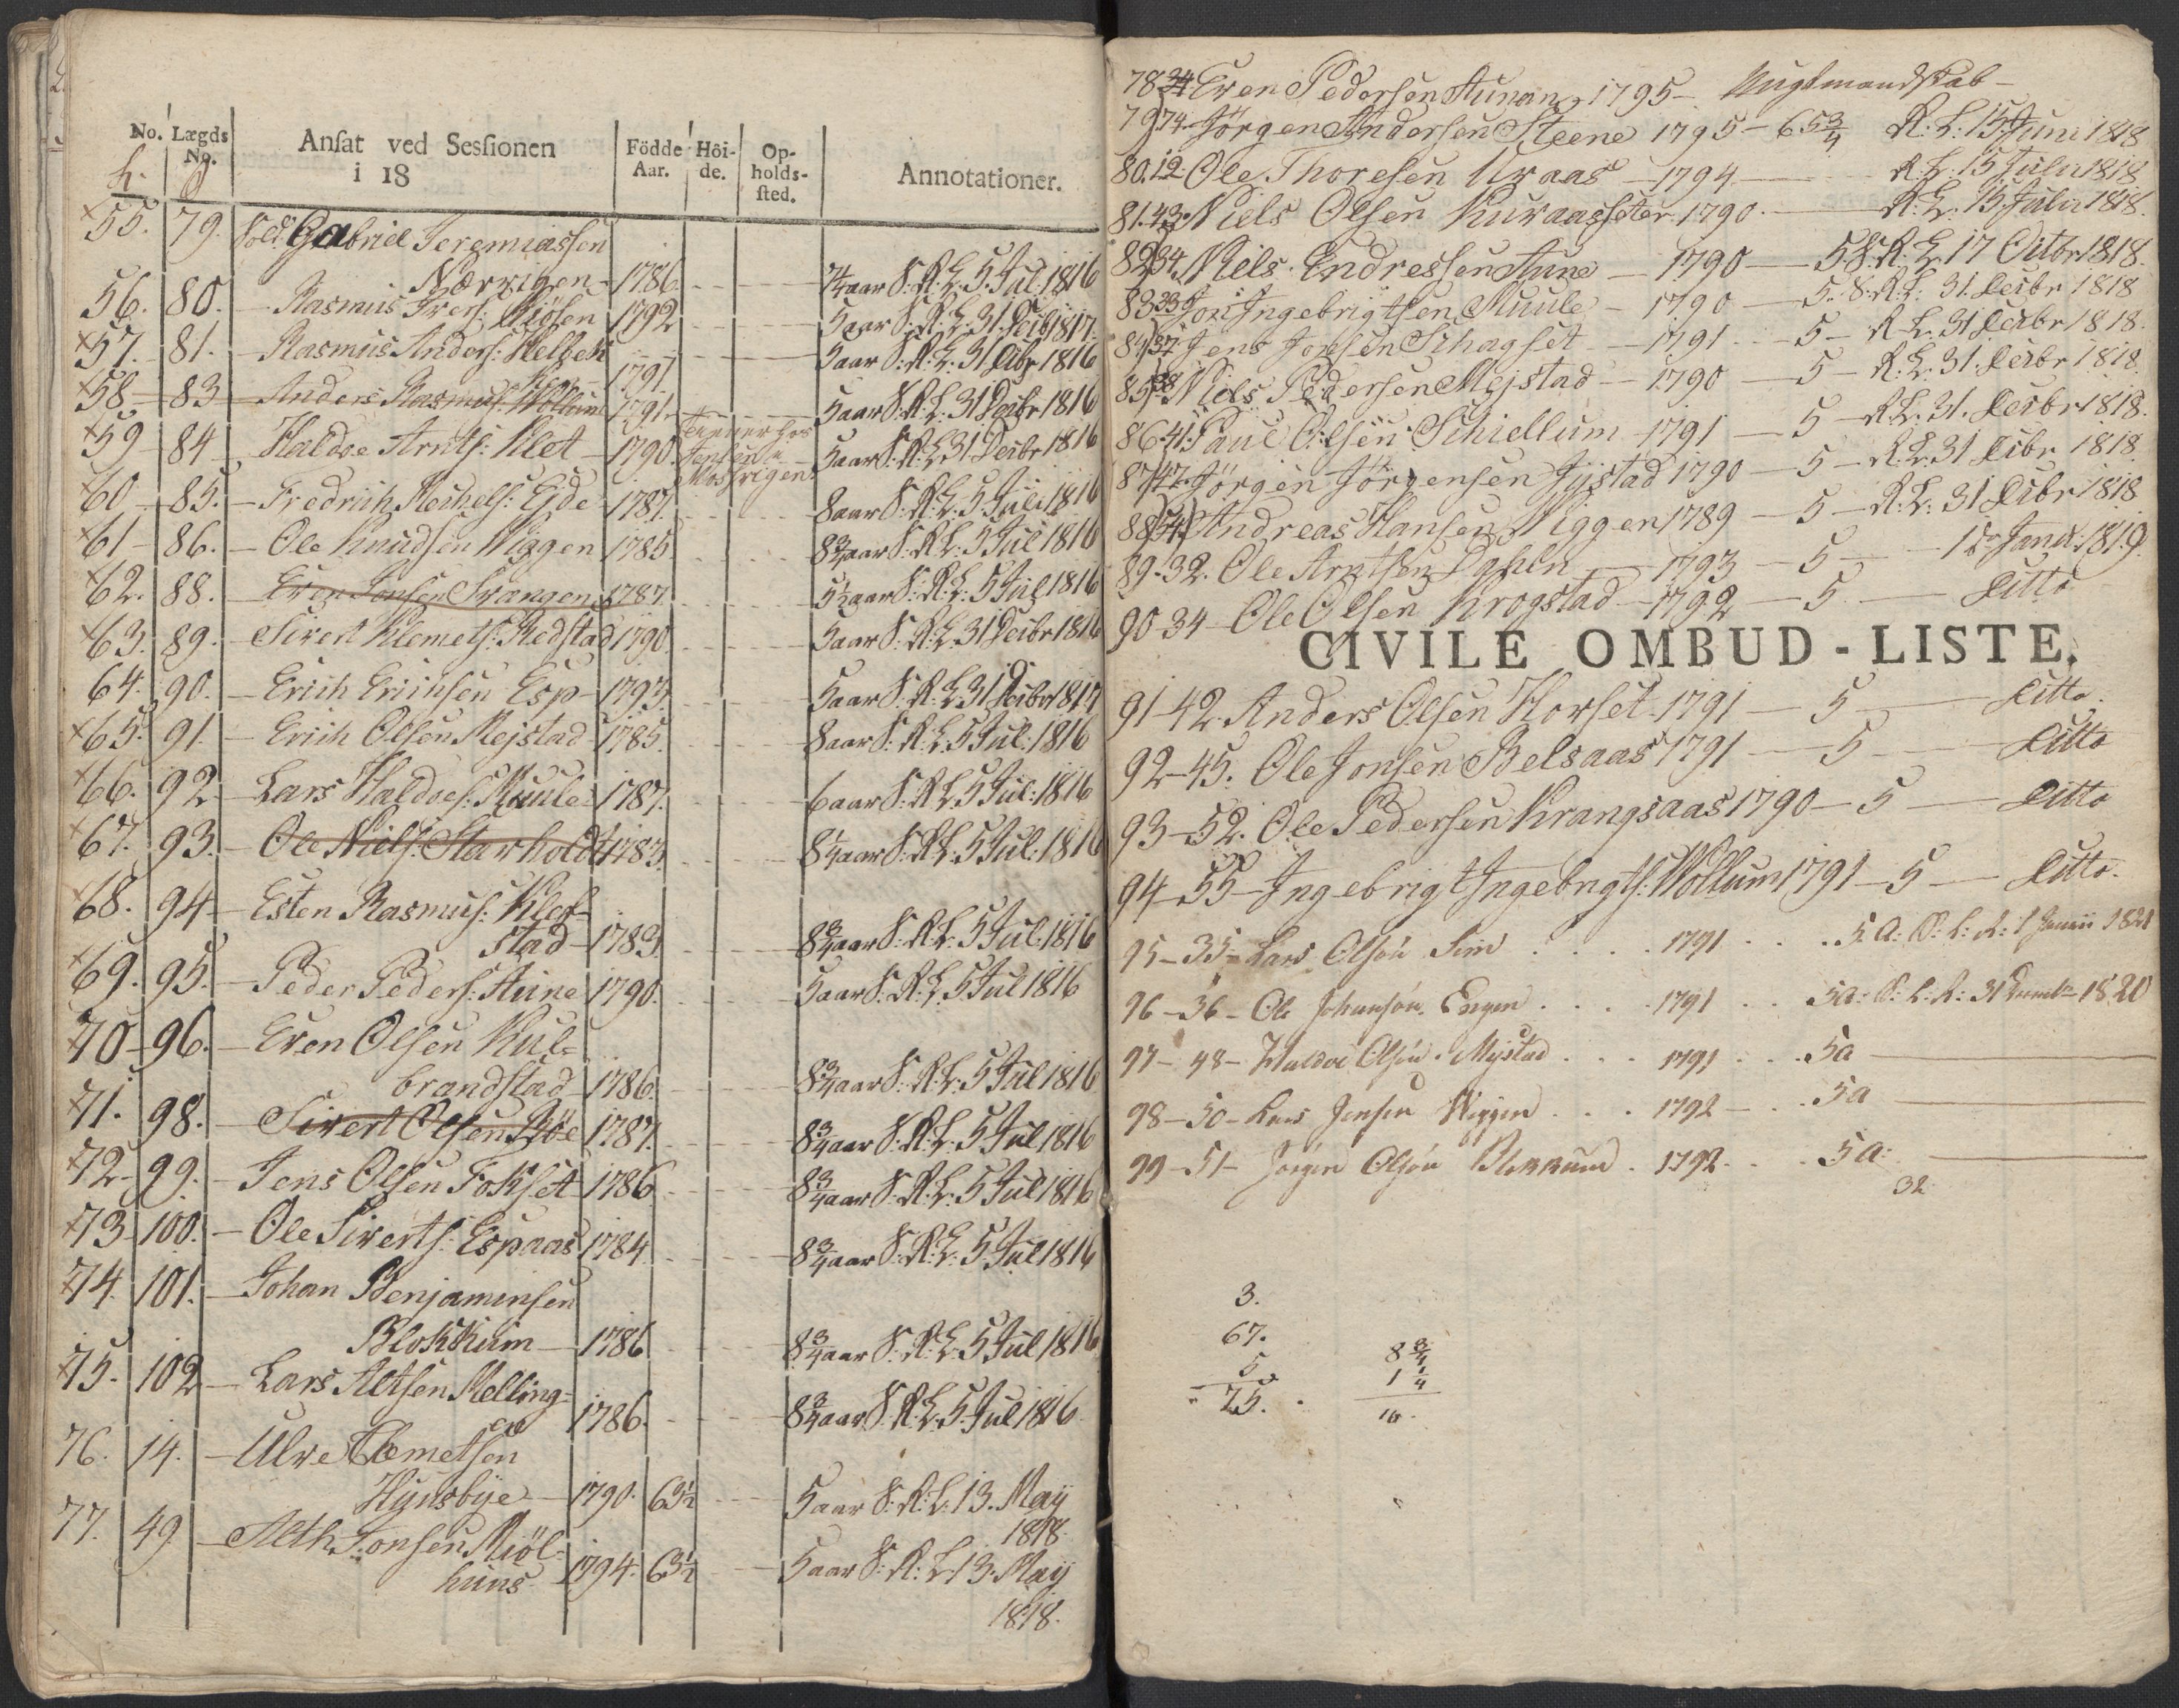 No. Lægds No. Ansat ved Sessionen i 18 Födde Aar. Höide. Opholdssted. Annotationer.
55. 79. Sold. Gabriel Jeremiassen
Nærvigen 1786. 7/4 aar S: R: L: 5. Jul: 1816
56. 80. Rasmus Ivers: Miölen 1792 5 aar S: R: L: 31. Decbr 1817.
57. 81. Rasmus Anders: Kelzeh 1791. 5 aar S: R: L: 31 Decbr 1816
58 83 Anders Rasmus: Wollum 1791. 5 aar S: R: L: 31 Decbr 1816
59 84 Haldoe Arnts: Klet 1790. Tienner hos 5 aar S: R: L: 31 Decbr 1816
60 85. Fredrich Mechels: Eide 1787. 8 aar S: R: L: 5 Juli 1816
61 86. Ole Knudsen Wiggen 1785 8 3/4 aar S: R: L: 5 Jul 1816
62. 88. Even Jonsen Svangen 1787. 5 1/2 aar S: R: L: 5 Jul 1816
63. 89. Sivert Klemets: Redstad 1790 5 aar S: R: L: 31 Decbr 1816
64. 90. Erich Erichsen Esp 1793. 5 aar S: R: L: 31 Decbr 1817
65. 91. Erich Olsen Mejstad 1785. 8 aar S: R: L: 5 Jul: 1816
66. 92 Lars Haldoes: Muule 1787. 6 aar S: R: L: 5 Jul: 1816
67. 93. Ole Niels: Starholdt 1783. 8 1/4 aar S: R: L: 5 Jul: 1816
68. 94 Esten Rasmus: Klef=
stad 1783. 8 3/4 aar S: R: L: 5 Jul: 1816
69. 95. Peder Peders: Aune 1790. 5 aar S: R: L: 5 Jul 1816
70 96. Even Olsen Kul=
brandstad 1786. 8 3/4 aar S: R: L: 5 Jul 1816
71. 98. Sivert Olsen Böe 1787. 8 3/4 aar S: R: L: 5 Jul 1816
72. 99. Jens Olsen Fokset 1786 8 3/4 aar S: R: L: 5 Jul 1816
73 100. Ole Siverts: Espaas 1784 8 3/4 aar S: R: L: 5 Jul 1816
74. 101. Johan Benjaminsen
Blokkum 1786 8 3/4 aar S: R: L: 5 Jul 1816
75. 102 Lars Altsen Melling=
en 1786. 8 3/4 aar S: R: L: 5. Jul 1816
76. 14. Ulve Clemetsen
Hynsbye 1790. 63 1/2 5 aar S: R: L: 13. Maij
1818.
77. 49 Alth Jonsen Miöl=
huus 1794. 63 1/2 5 aar S: R: L: 13. Maij
1818.
78 34 Even Pedersen Aunan 1795 Rugtmandskab
79 74 Jörgen Andersen Steene 1795 - 65 3/4 R: L: 15 Juni 1818
80. 19. Ole Thoresen Uvaas 1794 R: L: 15 Julii 1818
81. 43. Niels Olsen Kuraasseter 1790. R: L: 15 Julii 1818.
82 34. Niels Endressen Aune 1790 5 S: R: L: 17 Octbr 1818.
83 33 Jon Ingebrigtsen Muule 1790 5. S: R: L: 31. Decbr 1818
84 37 Jens Jonsen Schagset 1791 5 R: L: 31 Decbr 1818.
85 38 Niels Pedersen Mejstad 1790 5 R: L: 31. Decbr 1818
86 41. Paul Olsen Schiellum 1791 5 R: L: 31. Decbr 1818.
87 47. Jörgen Jörgensen Gystad 1790 5 R: L: 31 Decbr 1818.
88 54 Andreas Hansen Wiggen 1789 5 R: L: 31 Decbr 1818
89. 32. Ole Arntsen Dahlen 1793 5 1ste Janr: 1819.
90 34 Ole Olsen Krogstad 1792 5 Ditto
CIVILE OMBUD-LISTE.
91 42 Anders Olsen Horset 1791 5 Ditto.
92 45. Ole Jonsen Belsaas 1791 5 Ditto
93 52. Ole Pedersen Krangsaas 1790 5 Ditto
94 55 Ingebrigt Ingebrigts: Wollum 1791 5 Ditto.
95 35 Lars Olsen Lim 1791 5 A: S: L: R: 1 Januii 1821
96 36 Ole Johansen Engen 1791 5 a: S: L: R: 31 Decembr 1820
97 48 Haldoe Olsen Mystad 1791 5 a
98 50 Lars Jensen Wiggen 1792 5 a
99 51 Jörgen Olsen Blekkum 1792 5 a:
32
3.
67.
5
75.
8 3/4
1 1/4
10.